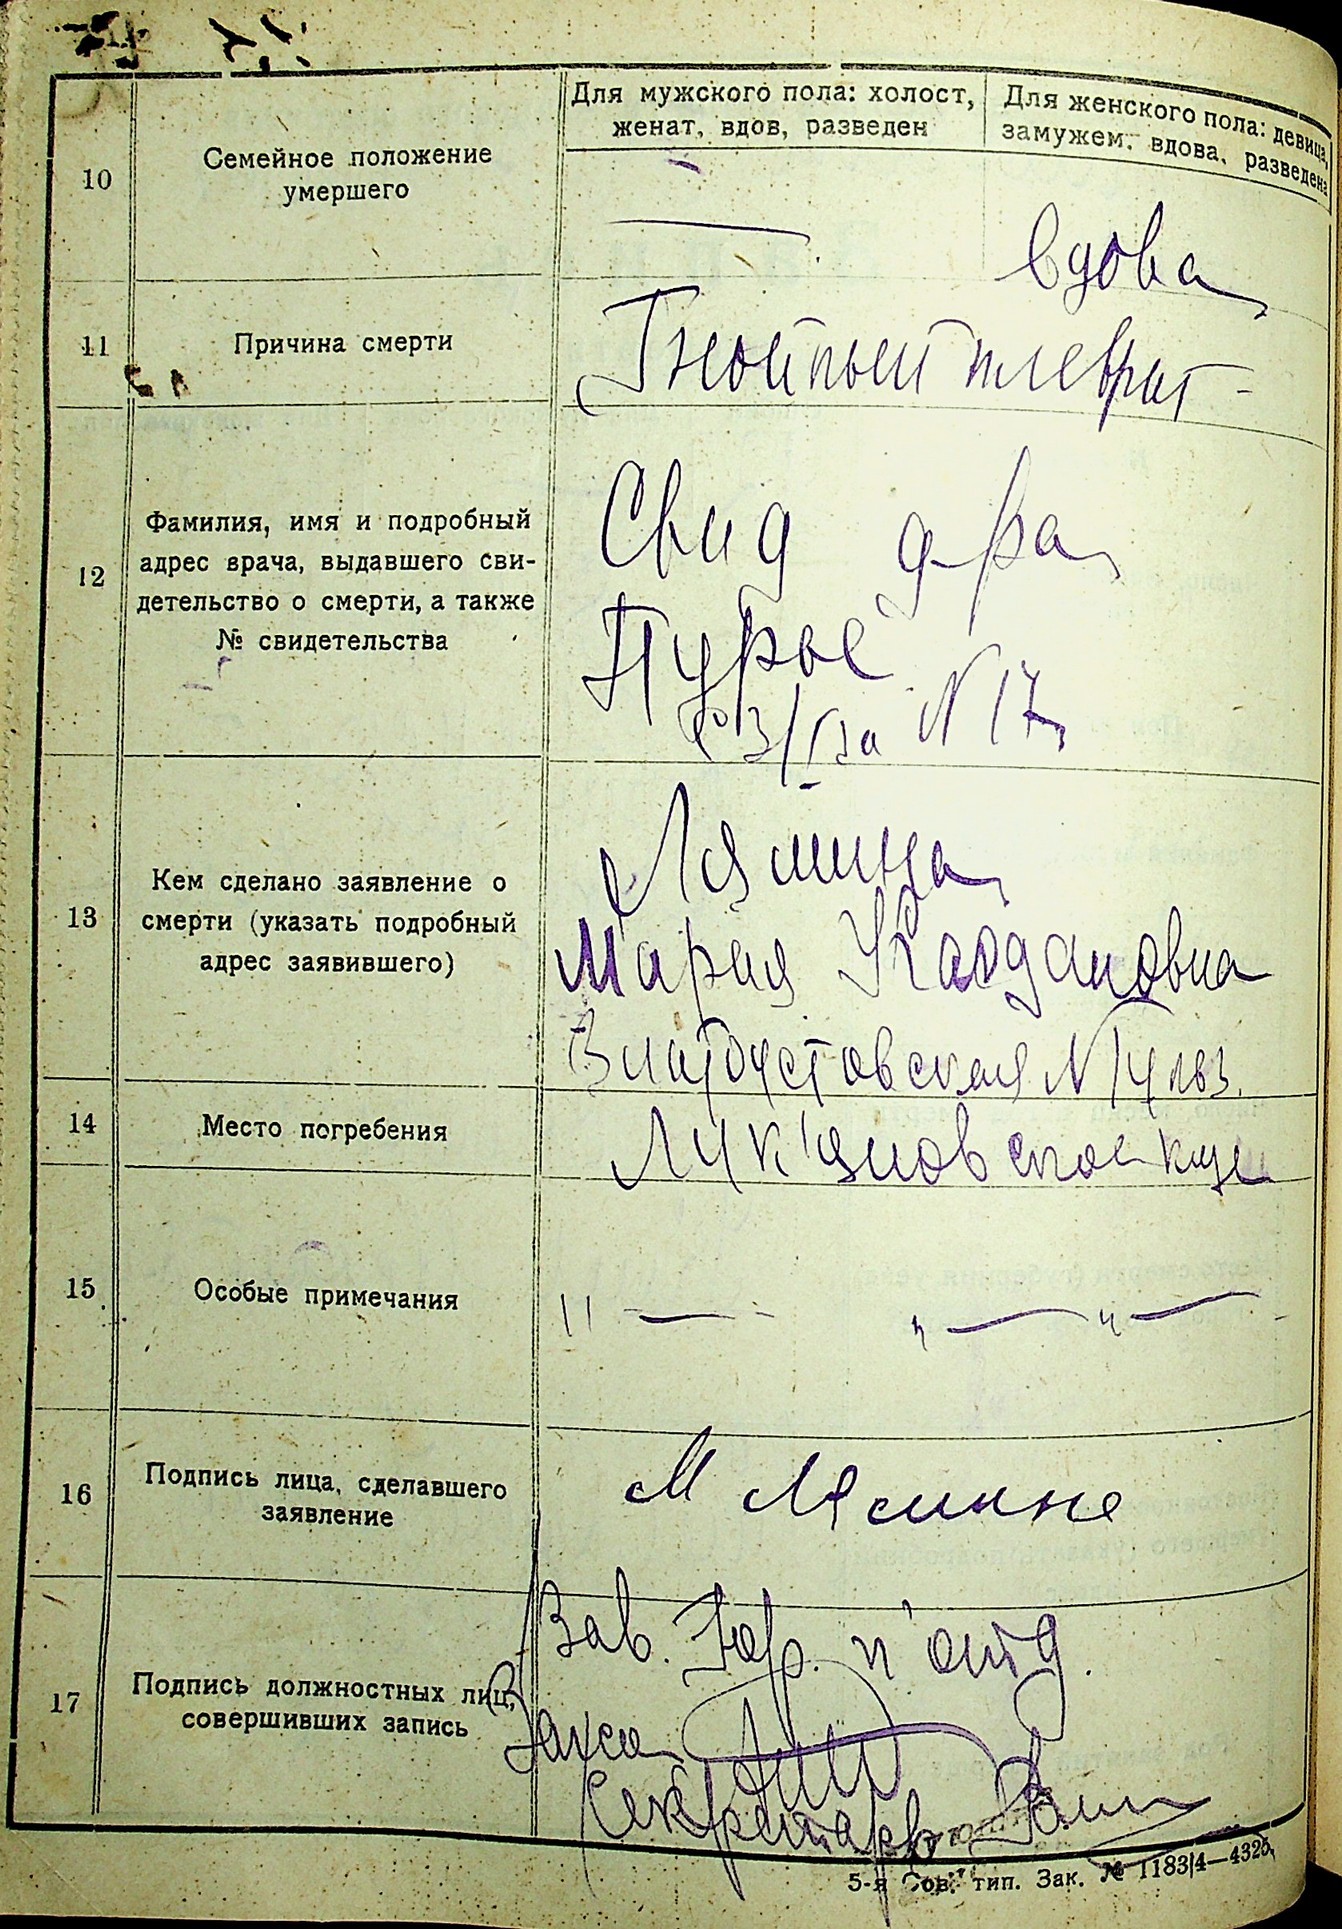 Для мужского пола: холост,
женат, вдов, разведен
Для женского пола: девица,
замужем, вдова, разведена
10
Семейное положение
умершего
вдова
11
Причина смерти
Гнойный плеврит
12
Фамилия, имя и подробный
адрес врача, выдавшего сви-
детельство о смерти, а также
№ свидетельства
Свид д-ра
N 17
13
Кем сделано заявление о
смерти (указать подробный
адрес заявившего)
Лямина
Мария
Златоустовская N
14
Место погребения
Лук'яновское кще
15
Особые примечания
16
Подпись лица, сделавшего
заявление
М Лямина
17
Подпись должностных лиц,
совершивших запись
Зав. п'отд.
Загса
Секретарь
5-я Сов. тип. Зак. № 1183/4—4325.